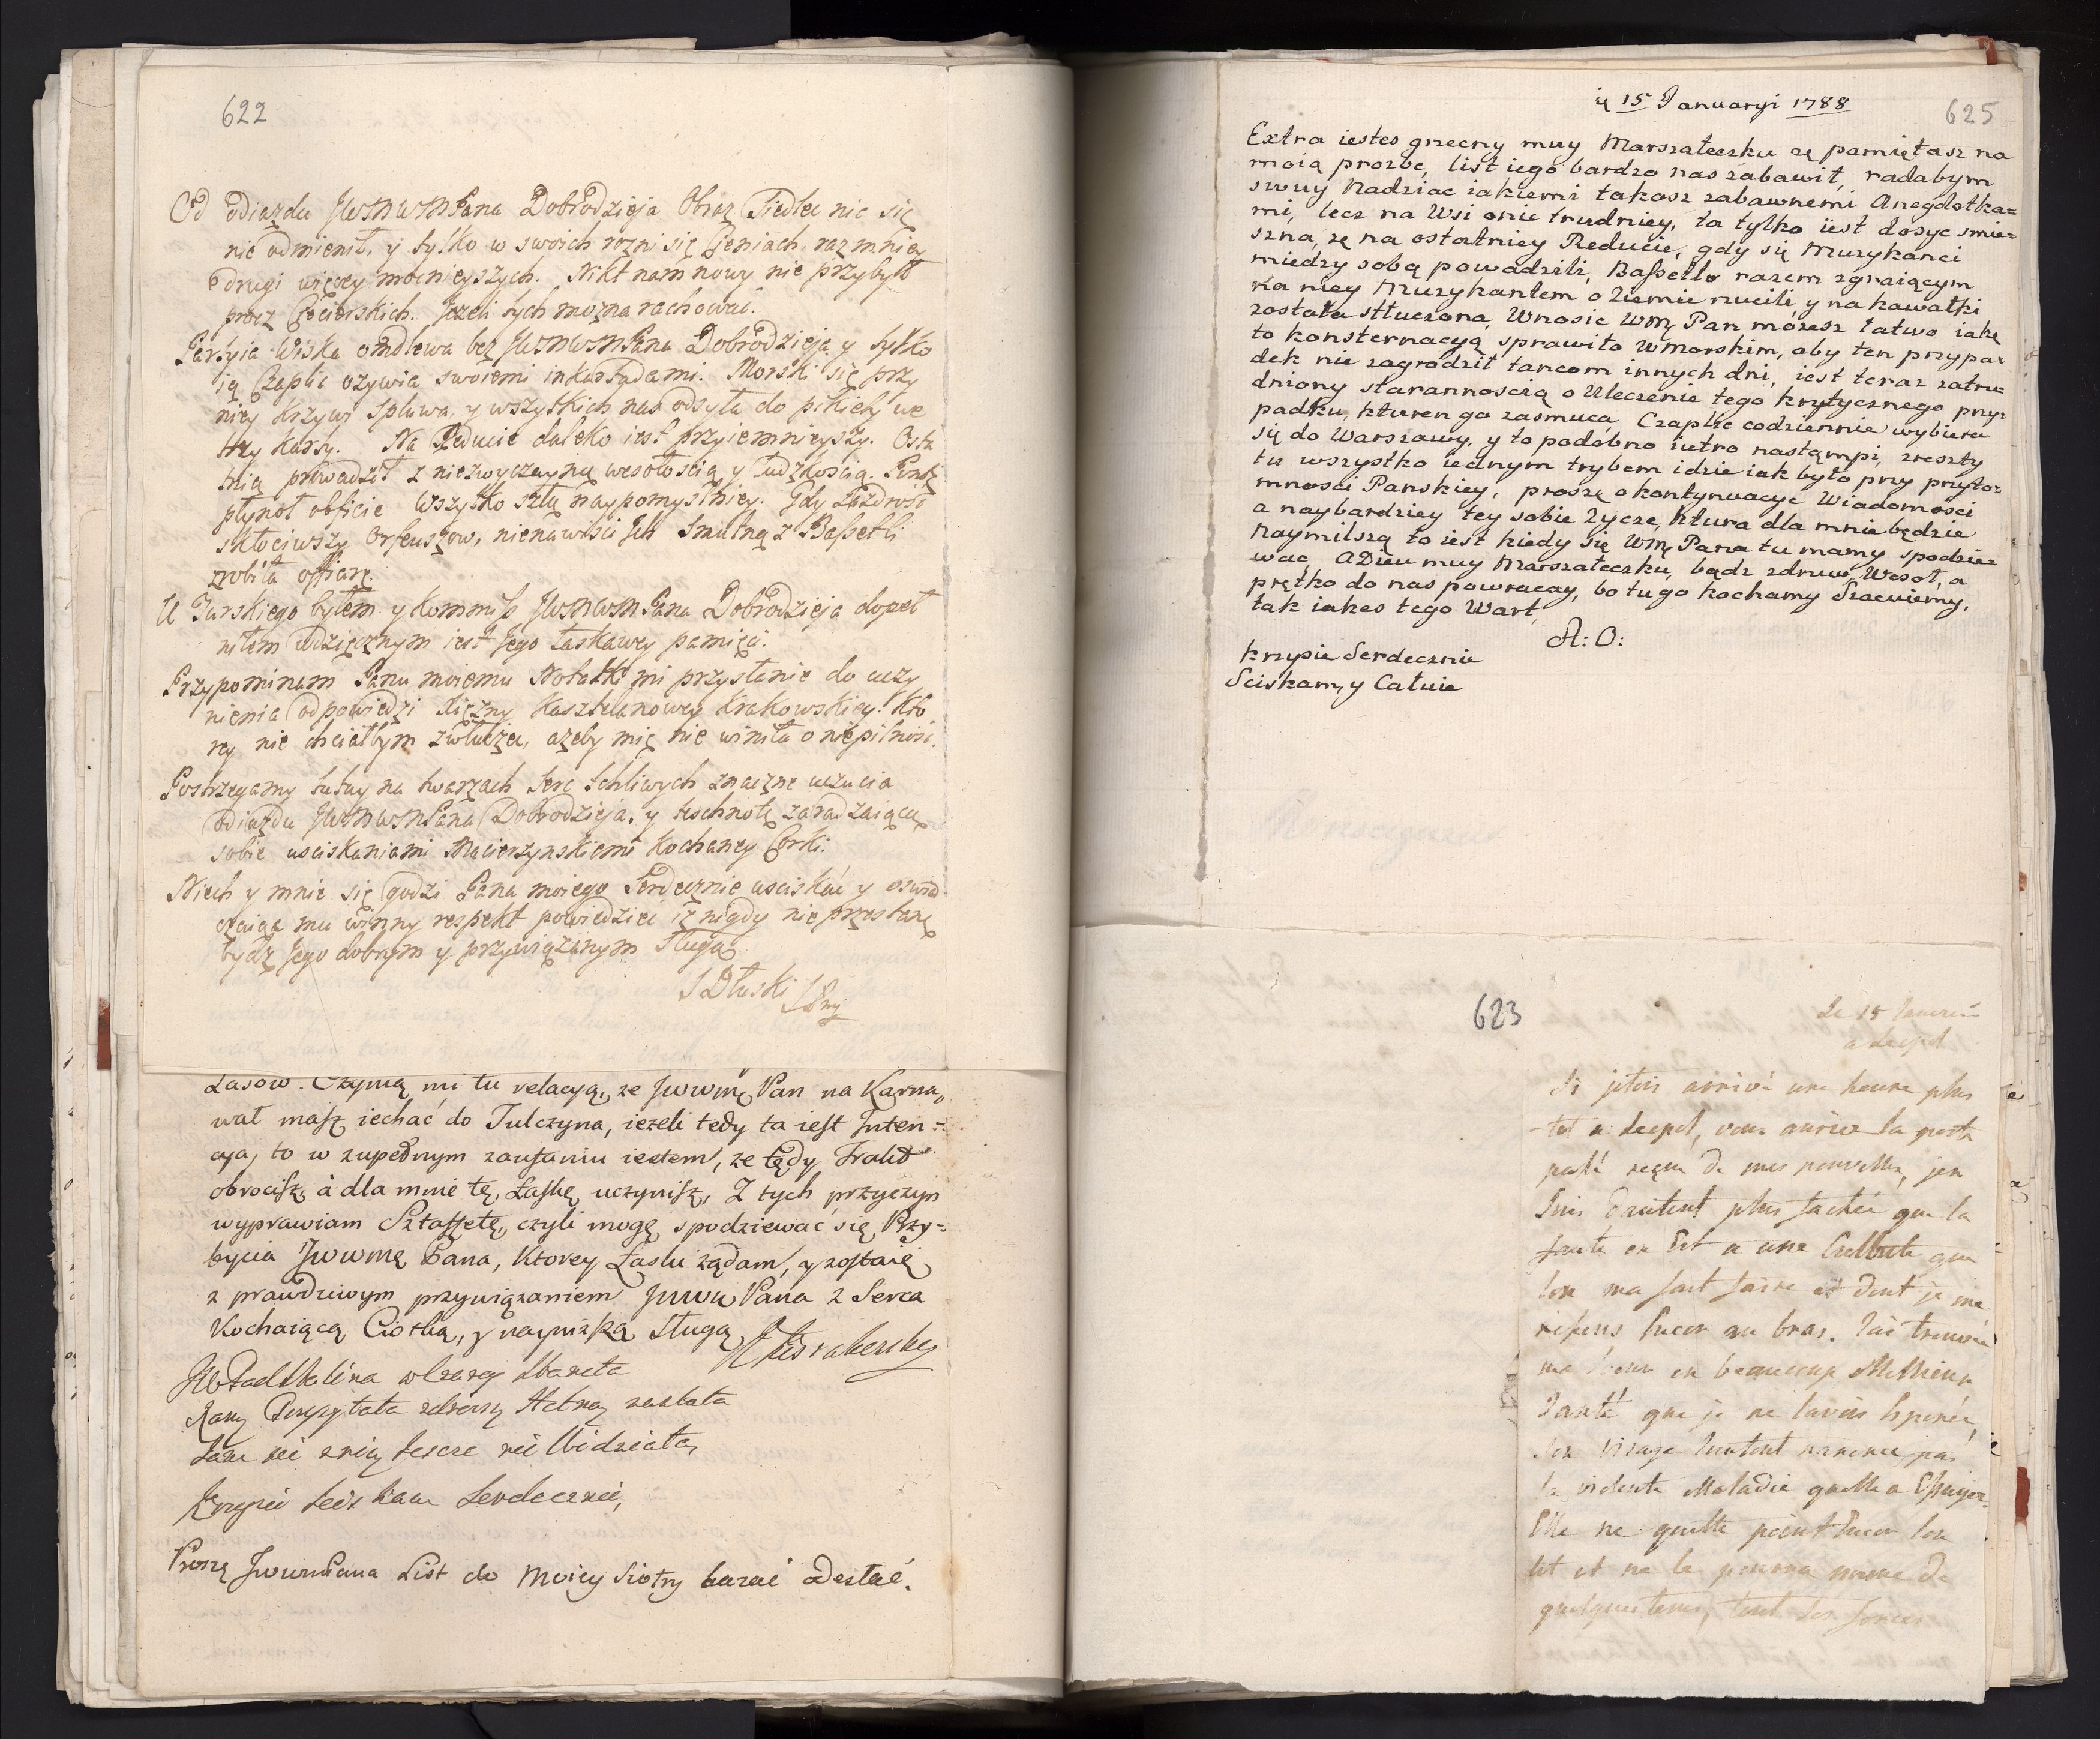 622
Od odiazdu JWWPana Dobrodzieja Obraz Siedlec nic się
nie odmienił, y tylko w swoich rożni się Cieniach raz mniey
drugi więcey mocnieyszych. Nikt nam nowy nie przybył
procz Cieciszkich. Jezeli tych mozna rachować.
Partyia Wiska omdlewa bez JWWPana Dobrodzieja y tylko
ią Czaplic ozywia swoiemi inkartadami. Morski się przy
niey krzywi spluwa, y wszystkich nas odsyła do pikiety we
trzy karty. Na Reducie daleko iest przyiemnieyszy. Osta
tnią prowadził z niezwyczayną wesołoscią y ludzkoscią. Poncz
płynoł obficie Wszystko szło naypomyslniey. Gdy Zazdrość
skłociwszy Orfeuszow, nienawisci Ich Smutną z Bassetli
zrobiła offiarę.
U Jarskiego byłem y kommiss JWWPana Dobrodzieja dopeł
niłem wdzięcznym iest Jego łaskawey pamięci.
Przypominam Panu moiemu Notatki mi przysłanie do uczy
nienia odpowiedzi Xiężny Kasztelanowey Krakowskiey. Kto
rey nie chciałbym zwłuczyć, azeby mię nie winiła o niepilność.
Postrzegamy tutay na twarzach Serc tchliwych znaczne uczucia
odiazdu JWWPana Dobrodzieja, y tęschnotę zaradzaiącą
sobie usciskaniami Macierzynskiemi Kochaney Corki.
Niech y mnie się godzi Pana moiego Serdecznie uscisкаć y oswiad
czaiąc mu winny respekt powiedzieć iż nigdy nie przestanę
bydz Jego dobrym y przywiązanym Sługą
J Dłuski
Lasow. Czynią mi tu relacyą, ze JWWMę Pan na Karna„
wał masz iechać do Tulczyna, iezeli tedy ta iest Inten=
cya, to w zupełnym zaufaniu iestem, ze tędy Trakt
obrocisz, à dla mnie tę, Łaskę uczynisz, Z tych przyczyn
wyprawiam Sztaffetę, czyli mogę spodziewać się Przy=
bycia JWWMę Pana, Ktorey Łaski ządam, y zostaię
z prawdziwym przywiązaniem JWW Pana z Serca
Kochaiącą Ciotką, y nayniszą Sługą
zdrową zastała
ieszcze nie Widziała,
Krzysie Sciskam Serdecznie,
Proszę JWWPana List do Moiey Siotry kazać Oddać.
ię 15 Januaryi 1788
625
Extra iestes grzeczny muy Marszałeczku zę pamiętasz na
moią prozbę, list iego bardzo nas zabawił, radabym
swuy Nadziac iakiemi takosz zabawnemi Anegdotka=
mi, lecz na Wsi onie trudniey, ta tylko iest dosyc smie=
szna, zę na ostatniey Reducie, gdy się Muzykanci
miedzy sobą powadzili, Bassetlo razem zgraiącym
na niey Muzykantem o Ziemie rzucili y na kawałki
została stłuczona, Wnosic WMę Pan mozesz łatwo iakę
to konsternacyą sprawiło WMorskim, aby ten przypa=
dek nie zagrodzit tancom innych dni, iest teraz zatru=
dniony starannoscią o Uleczenie tego krytycznego przy=
padku, kturen go zasmuca, Czaplic codziennie wybiera
się do Warszawy, y to podobno iutro nastąmpi, zreszty
tu wszystko iednym trybem idzie iak było przy przyto=
mnosci Panskiey, proszę o kontynuacye Wiadomosci
a naybardziey tey sobie zycze, ktura dla mnie będzie
naymilszą to iest kiedy się WMę Pana tu mamy spodzie=
wac, ADieu muy Marszałeczku, bądz zdruw, Wesoł, a
prętko do nas powracay, bo tu go kochamy Szacuiemy,
tak iakes tego Wart,
A: O:
Krzysie Serdecznie
Sciskam, y Całuie
623
Le 15 Janvier
a Leopol
Si jetois arrivé une heure plus
-tot a Leopol, vous auriez la poste
passé reçu de mes nouvelles, jen
suis dautent plus fachée que la
faute en Est a une Culbute que
lon ma fait faire et dont je me
resens Encor au bras. Jai trouvée
ma Soeur en beaucoup Meilleure
Santé que je ne lavois Esperée,
Son Visage Surtout nanonce pas
la violente Maladie quelle a Essuyée.
Elle ne quitte point Encor son
lit et ne le pourra meme de
quelques tems, tant ses forces